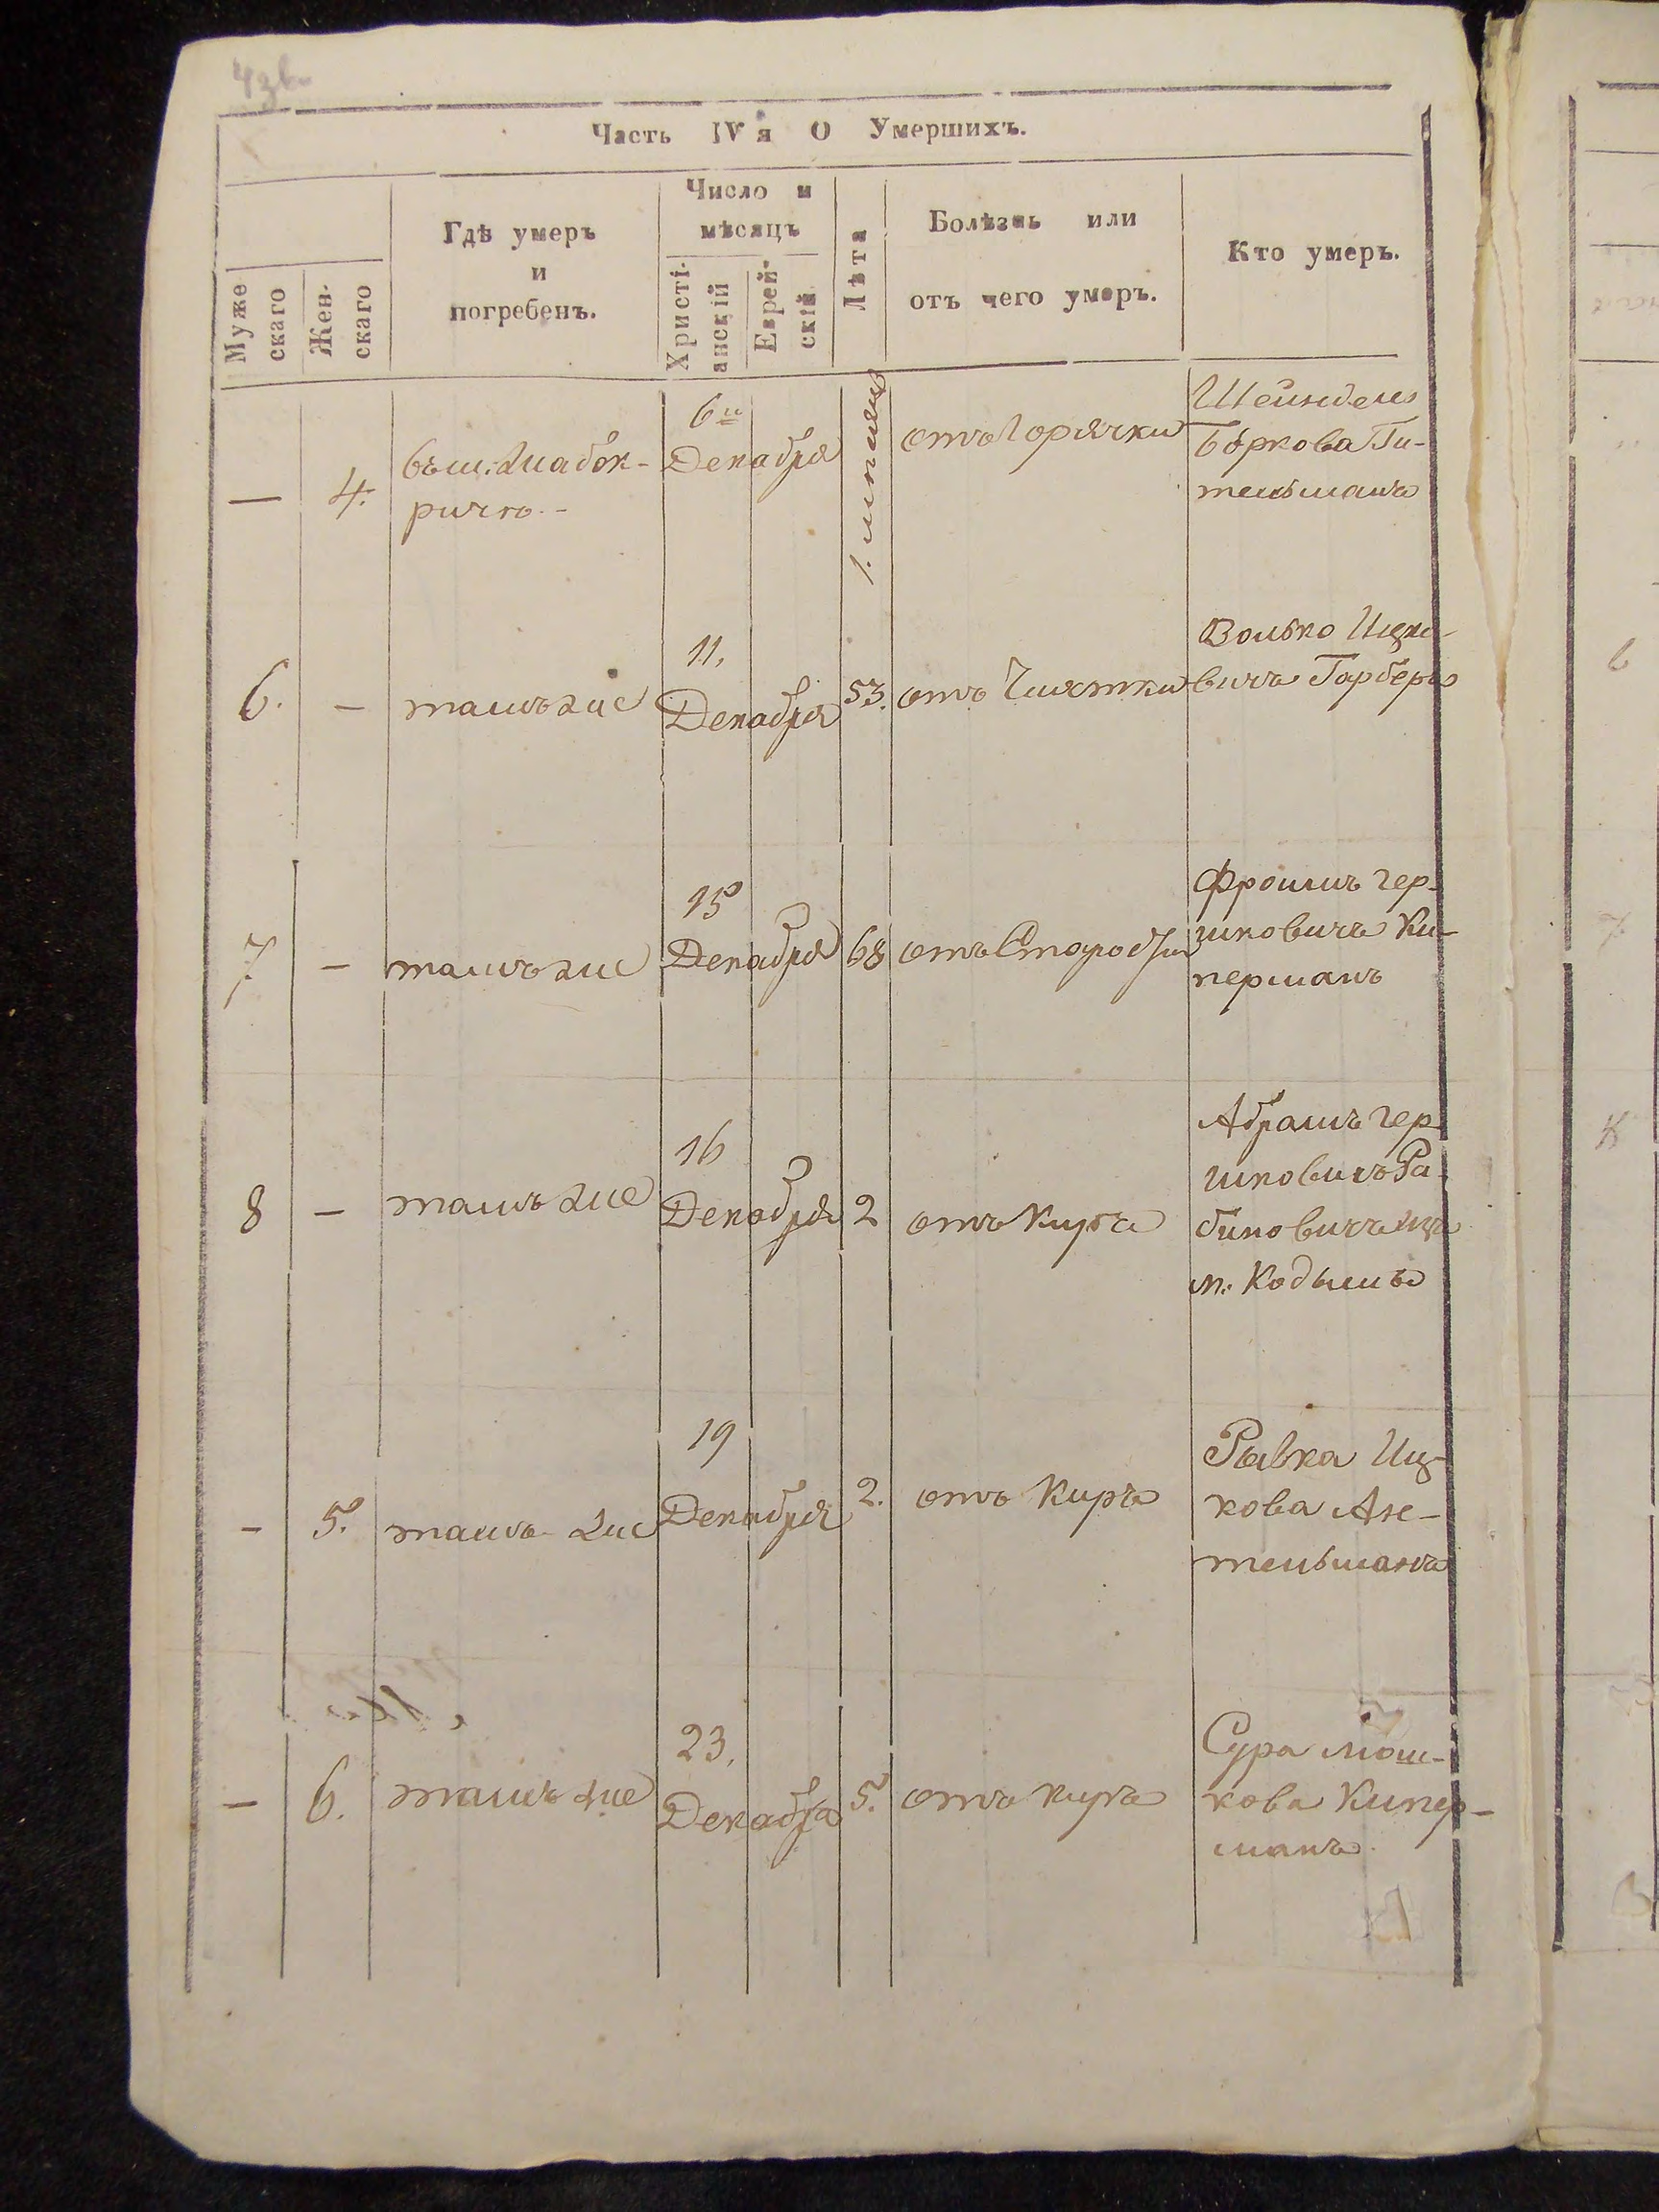 Часть IVя О Умершихъ.
Муже
скаго
Жен-
скаго
Гдѣ умеръ
и
погребенъ.
Число и
мѣсяцъ
Христі-
анскій
Еврей-
скій
Лѣта
Болѣзнь или
отъ чего умеръ.
Кто умеръ.
— 4.
6и
Декабря
отъ Горячки
Шейндель
Боркова Ги-
тельманъ
6. — тамъ же
11.
Декабря
53.
отъ Чихотки
Волько Ицко-
вичъ Гарберъ
7. — тамъ же
15
Декабря
68
отъ Старости
Фроимъ Гер-
шковичъ Ки-
перманъ
8 — тамъ же
16
Декабря
2
отъ Кура
Абрамъ Гер-
шковичъ Ра-
биновичъ изъ
м. Кодымы
— 5. тамъ же
19
Декабря
2.
отъ Кира
Рывка Иц-
кова
тельманъ
— 6. тамъ же
23.
Декабра
5.
отъ кура
Сура Мош-
кова Кипер-
манъ